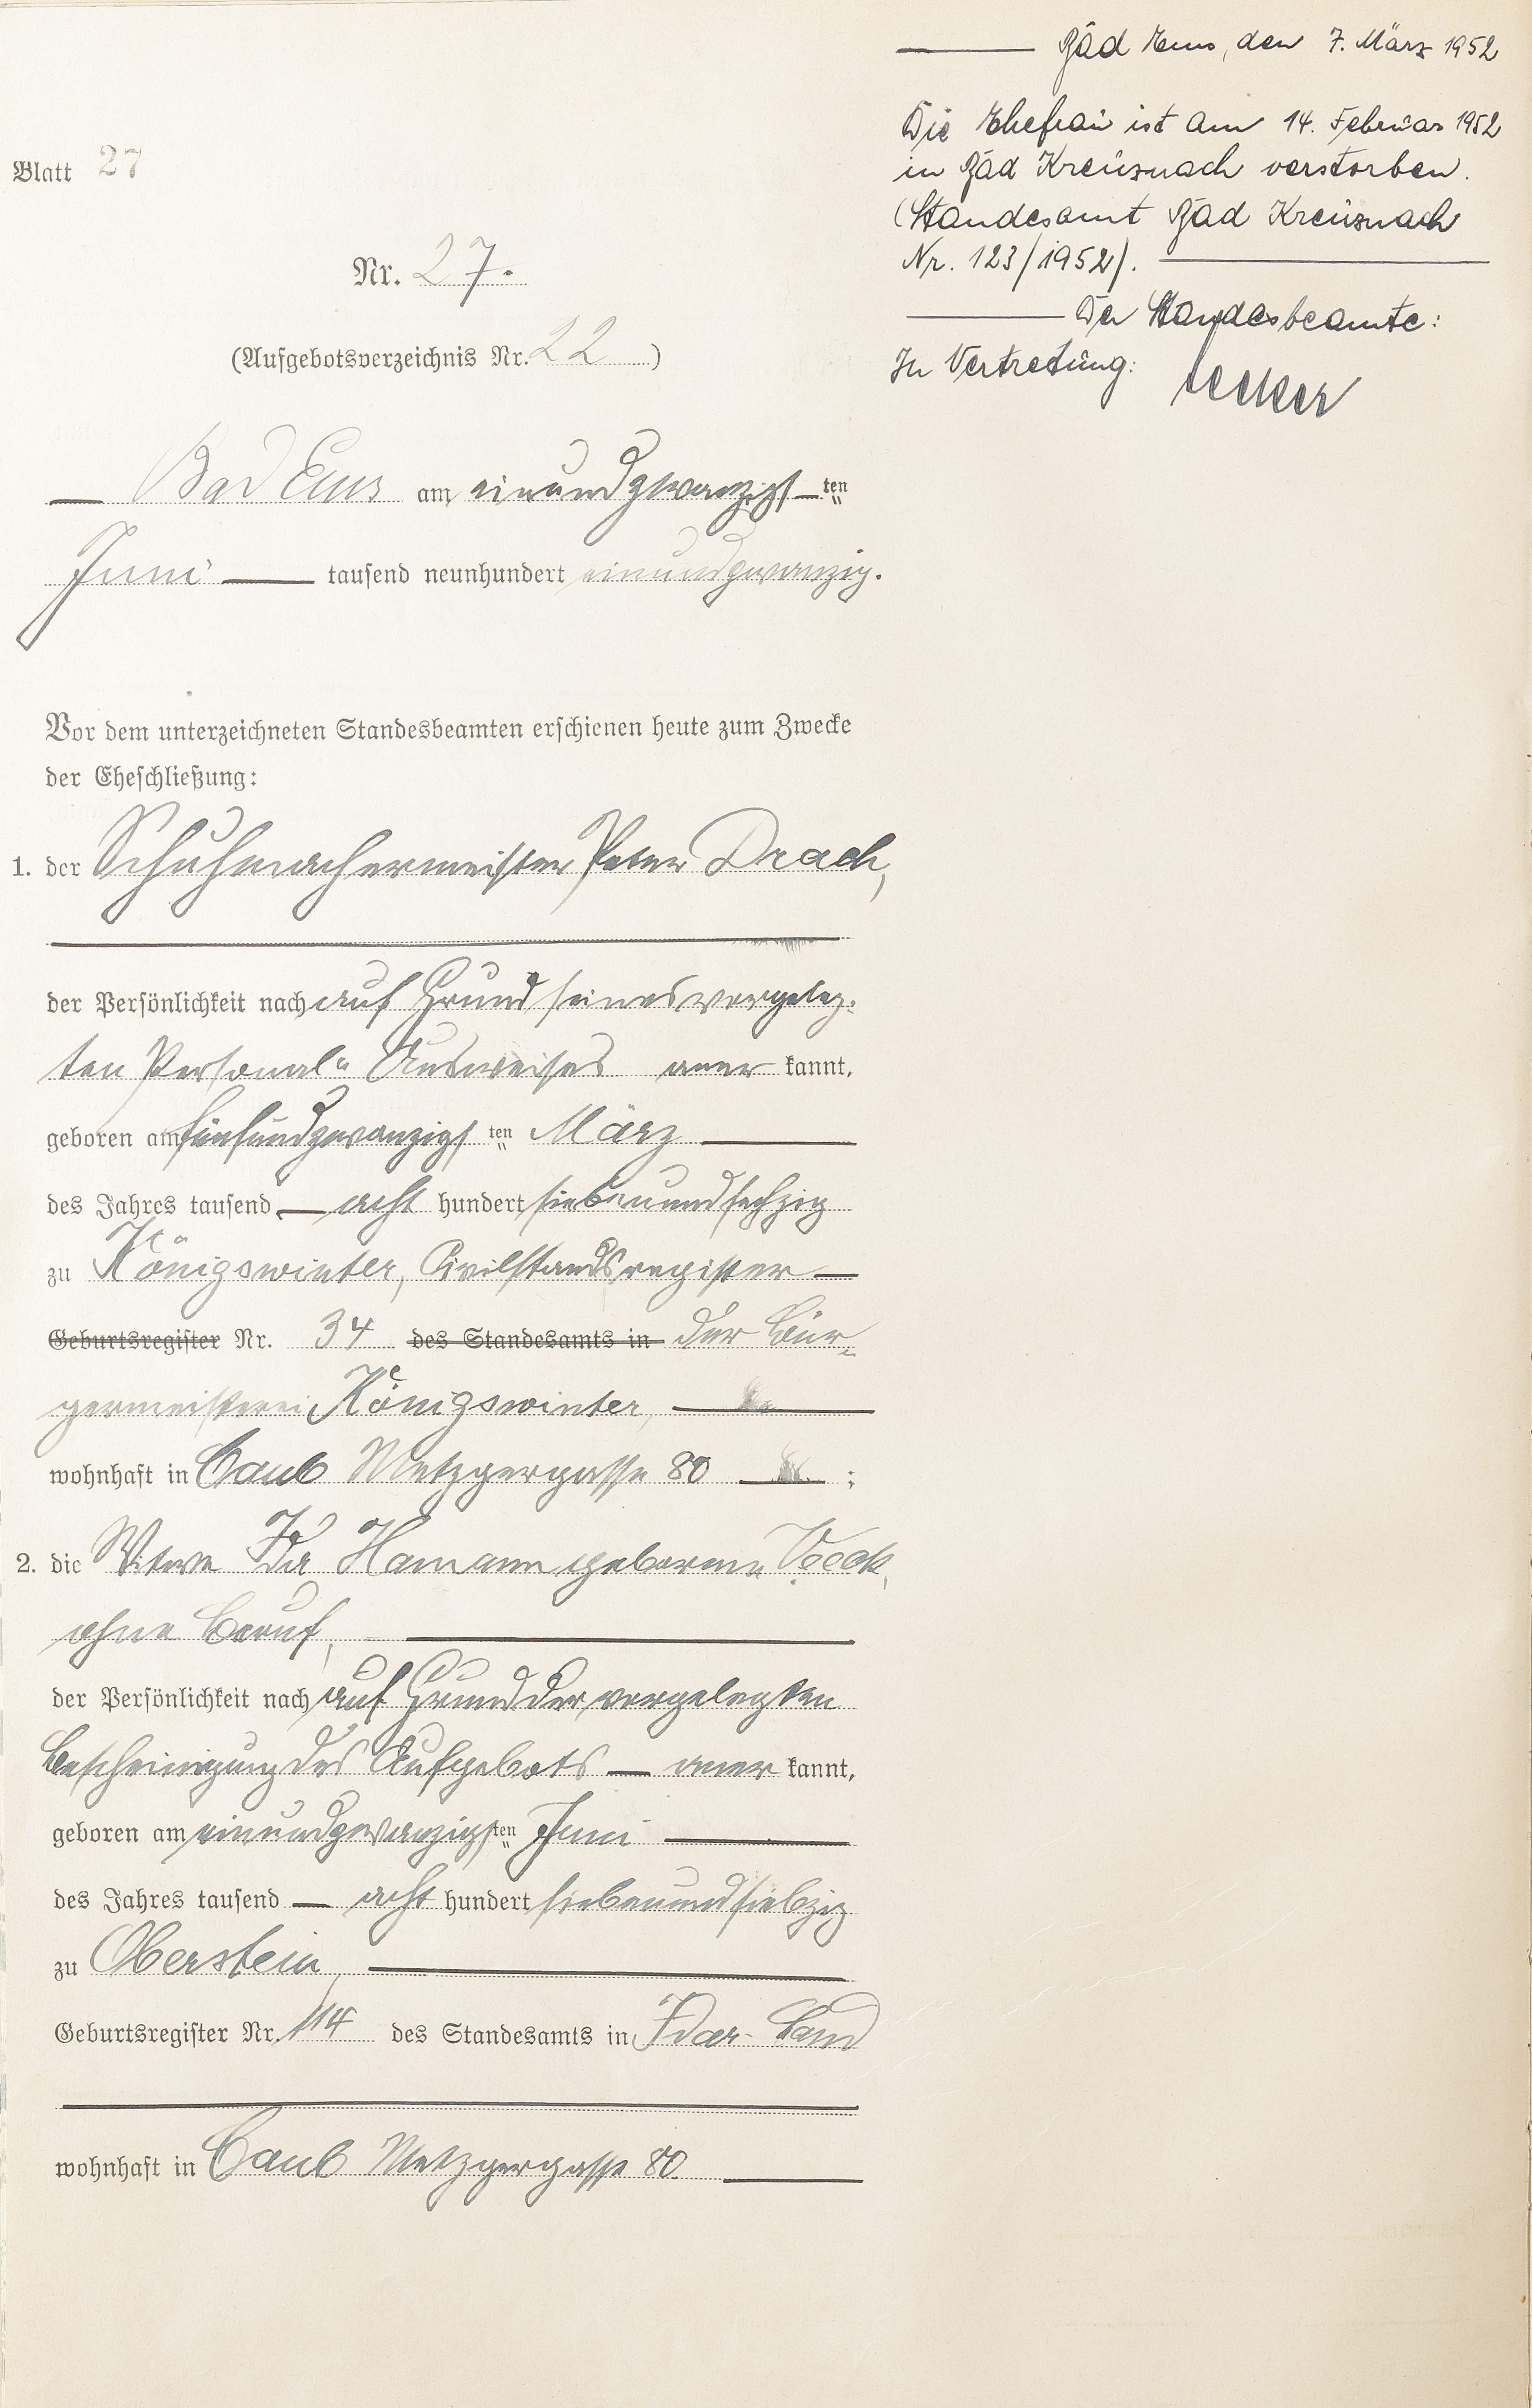 Blatt 27
Nr. 27.
(Aufgebotsverzeichnis Nr. 22)
Bad Ems am einundzwanzigsten
Juni tausend neunhundert einundzwanzig.
Vor dem unterzeichneten Standesbeamten erschienen heute zum Zwecke
der Eheschließung:
1. der Schuhmachermeister Peter Drach,
der Persönlichkeit nach auf Grund seines vorgeleg-
ten Personal- Ausweises aner kannt,
geboren am fünfundzwanzigsten März
des Jahres tausend acht hundert siebenundsechzig
zu Königswinter, Civilstandsregister
Geburtsregister Nr. 34 des Standesamts in der Bür-
germeisterei Königswinter,
wohnhaft in Caub Metzgergasse 80 ;
2. die Witwe Ida Hamann geborene
ohne Beruf,
der Persönlichkeit nach auf Grund der vorgelegten
Bescheinigung des Aufgebots aner kannt,
geboren am einundzwanzigsten Juni
des Jahres tausend acht hundert siebenundsiebzig
zu Oberstein,
Geburtsregister Nr. 114 des Standesamts in Idar-Land
wohnhaft in Caub Metzgergasse 80.
Bad Ems, den 7. März 1952
Die Ehefrau ist am 14. Februar 1952
in Bad Kreuznach verstorben.
(Standesamt Bad Kreuznach
Nr. 123/1952).
Der Standesbeamte:
In Vertretung: